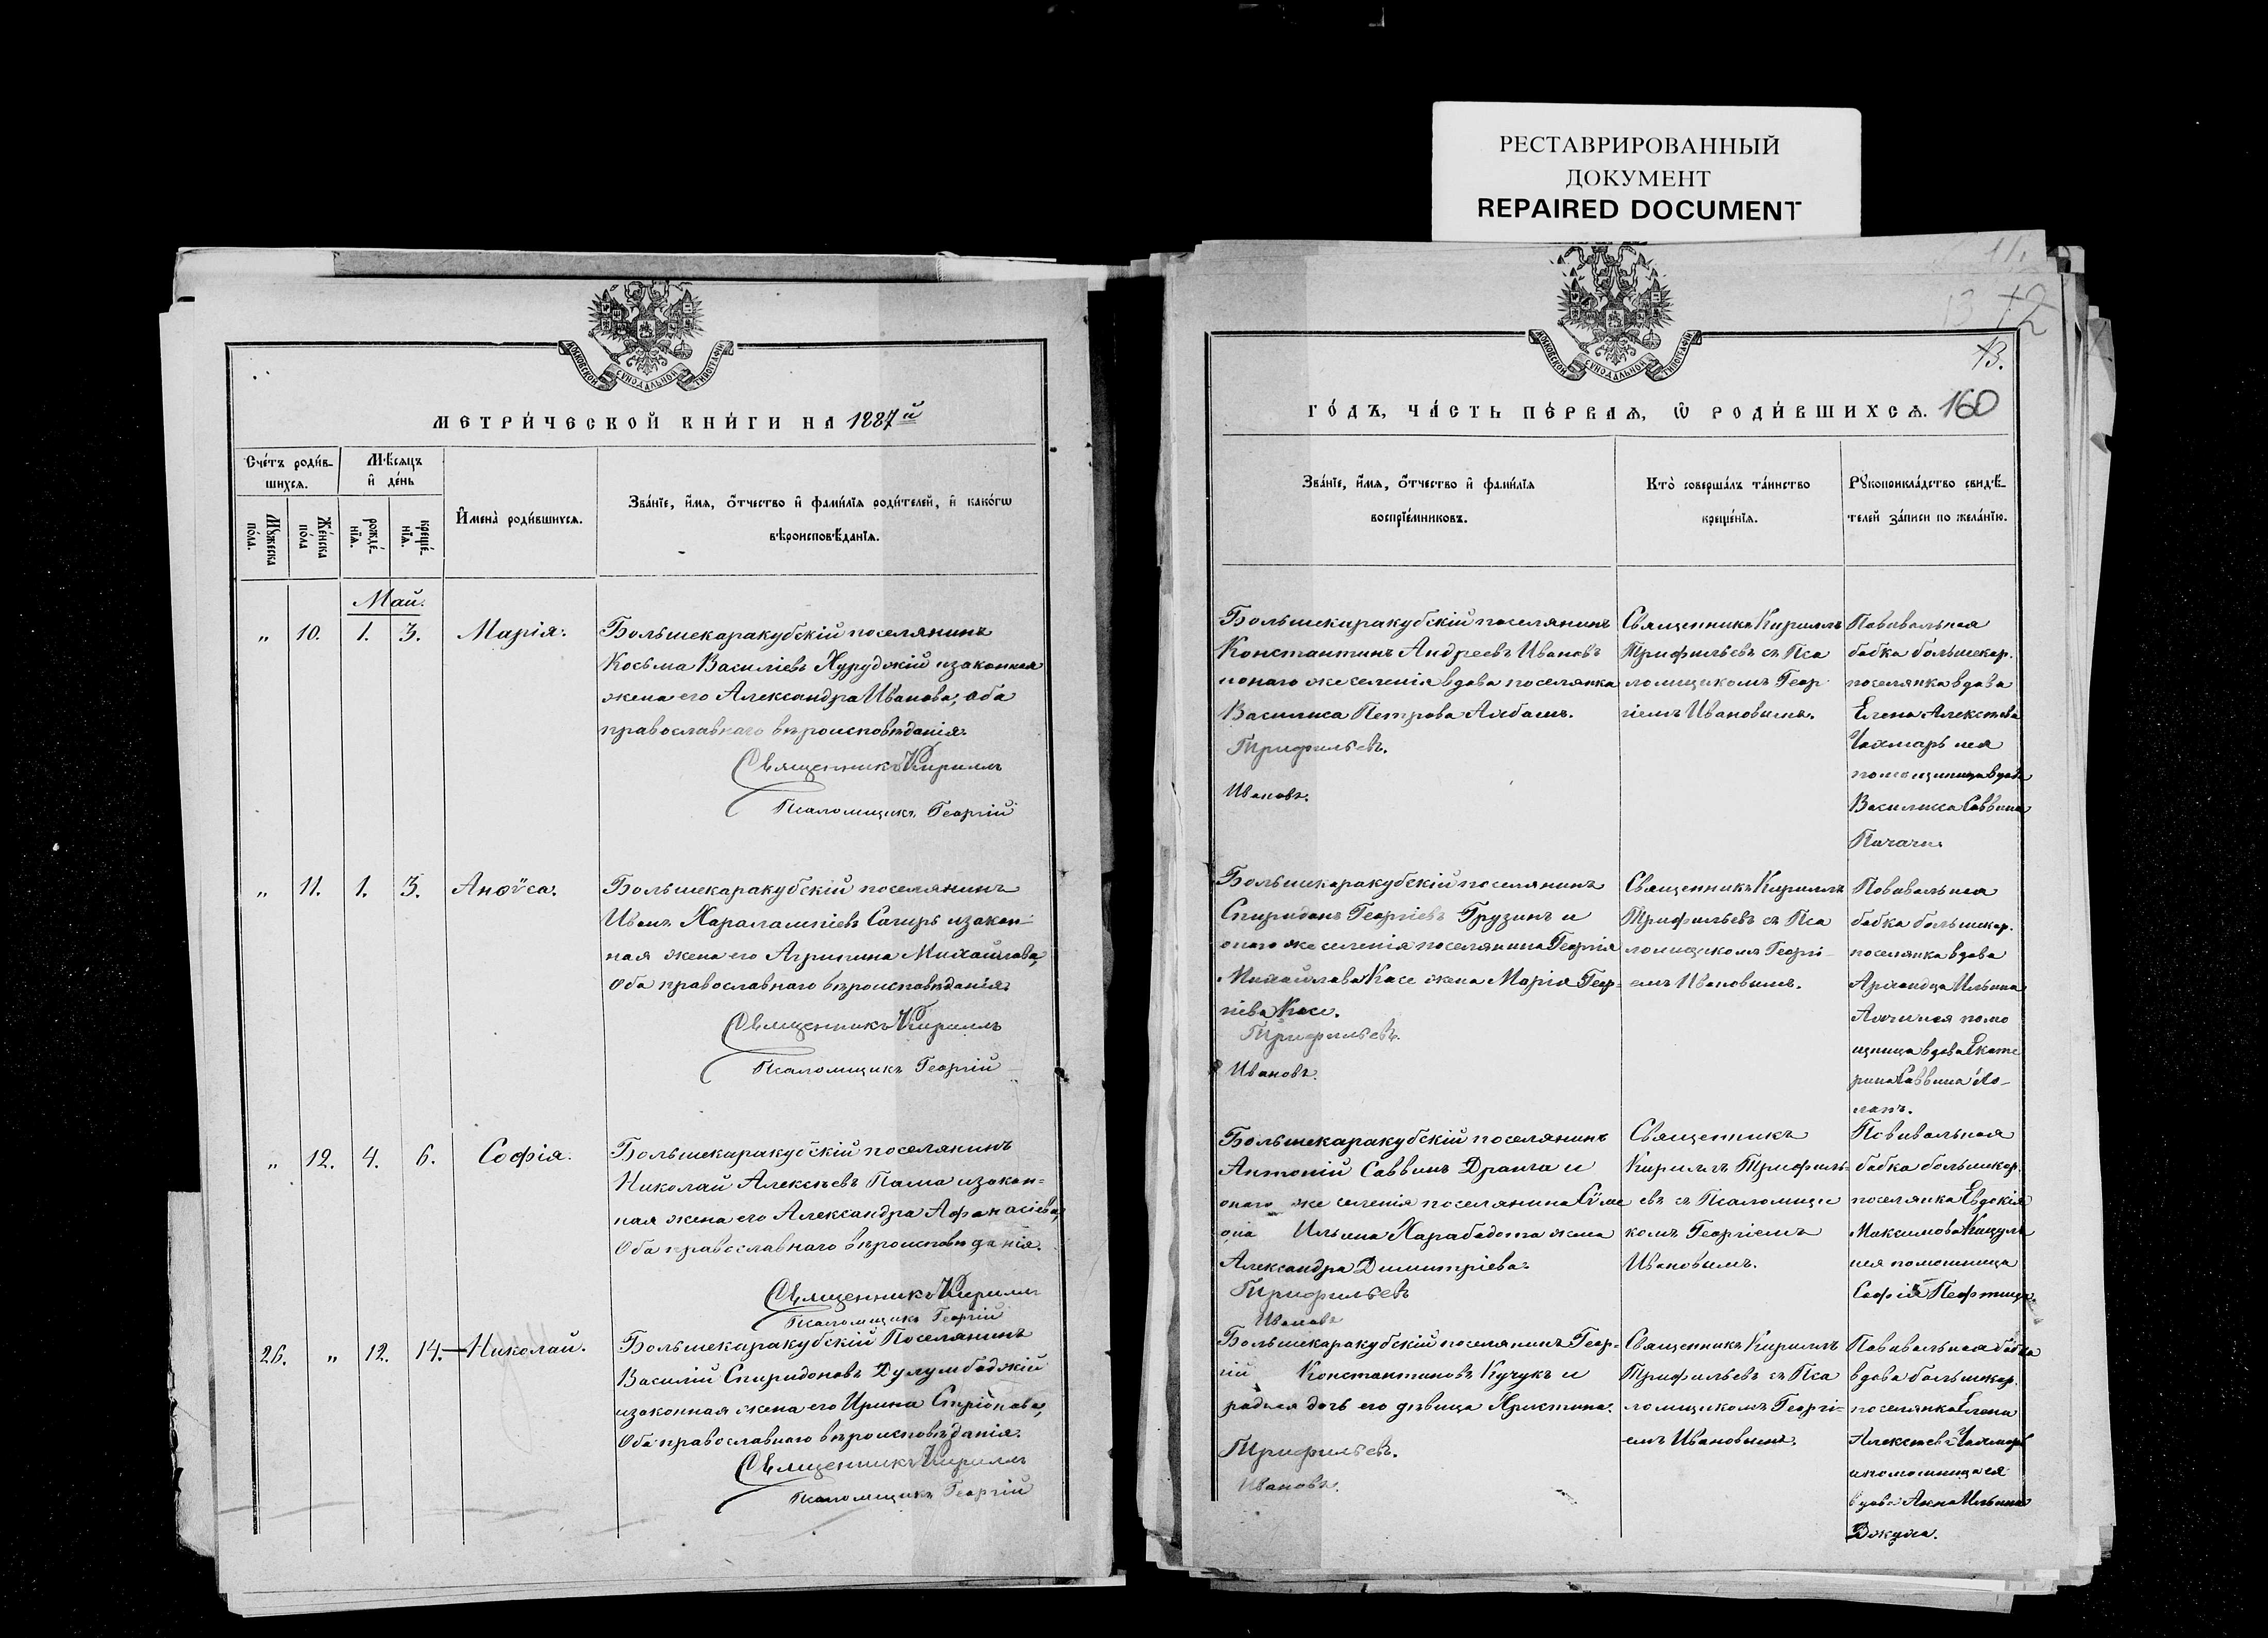 РЕСТАВРИРОВАННЫЙ
ДОКУМЕНТ
REPAIRED DOCUMENT
МОСКОВСКОЙ СѴНОДАЛЬНОЙ ТИПОГРАФІИ
МЕТРИ́ЧЕСКОЙ КНИ́ГИ НА 1887й
Сче́тъ роди́в-
шихсѧ.
Мѣ́сѧцъ
и҆ де́нь
Мꙋ́жеска
по́ла.
Же́нска
по́ла
рожде́-
нїѧ.
креще́-
нїѧ.
И҆мена̀ роди́вшихсѧ.
Зва́нїе, и҆́мѧ, ѻ҆́тчество и҆ фами́лїѧ роди́телей, и҆ како́гѡ
вѣроисповѣ́данїѧ.
Май.
„ 10. 1. 3. Марія.
Большекаракубскій поселянинъ
Косьма Василіевъ Хуруджій и законная
жена его Александра Иванова, оба
православнаго вѣроисповѣданія.
Священникъ Кириллъ
Псаломщикъ Георгій
„ 11. 1. 3. Анѳуса.
Большекаракубскій поселянинъ
Иванъ Харалампіевъ Сагиръ и закон-
ная жена его Агрипина Михайлова,
оба православнаго вѣроисповѣданія.
Священникъ Кириллъ
Псаломщикъ Георгій
„ 12. 4. 6. Софія.
Большекаракубскій поселянинъ
Николай Алексѣевъ Папа и закон-
ная жена его Александра Афанасіева,
оба православнаго вѣроисповѣданія.
Священникъ Кириллъ
Псаломщикъ Георгій
26. „ 12. 14. Николай.
Большекаракубскій Поселянинъ
Василій Спиридоновъ Дулумбаджій
и законная жена его Ирина
оба православнаго вѣроисповѣданія.
Священникъ Кириллъ
Псаломщикъ Георгій
МОСКОВСКОЙ СѴНОДАЛЬНОЙ ТИПОГРАФІИ
11.
13 12
13.
ГО́ДЪ, ЧА́СТЬ ПЕ́РВАѦ, Ѡ҆ РОДИ́ВШИХСѦ. 160
Зва́нїе, и҆́мѧ, ѻ҆́тчество и҆ фами́лїѧ
воспрїе́мниковъ.
Кто̀ соверша́лъ та́инство
креще́нїѧ.
Рꙋкоприкла́дство свидѣ́-
телей за́писи по жела́нїю.
Большекаракубскій поселянинъ
Константинъ Андреевъ Ивановъ
и онаго же селенія вдова поселянка
Василиса Петрова
Трифильевъ.
Ивановъ.
Священникъ Кириллъ
Трифильевъ съ Пса
ломщикомъ Геор
гіемъ Ивановымъ.
Повивальная
бабка большекар.
поселянка вдова
Елена Алексѣева
Чахмаръ ея
помощница вдова
Василиса Саввина
Пичахчи
Большекаракубскій поселянинъ
Спиридонъ Георгіевъ Грузинъ и
онаго же селенія поселянина Георгія
Михайлова Касе жена Марія Геор-
гіева Касе.
Трифильевъ.
Ивановъ.
Священникъ Кириллъ
Трифильевъ съ Пса
ломщикомъ Георгі-
емъ Ивановымъ.
Повивальная
бабка большекар.
поселянка вдова
Ильина
ея помо
щница вдова Екате
рина Саввина
Большекаракубскій поселянинъ
Антоній Саввинъ Драгга и
онаго же селенія поселянина Сѵме
она Ильина Харабадота жена
Александра Димитріева.
Трифильевъ
Ивановъ
Священникъ
Кириллъ Трифиль-
евъ съ Псаломщи
комъ Георгіемъ
Ивановымъ.
Повивальная
бабка большекар.
поселянка Евдокія
Максимова
ея помощница
Софія
Большекаракубскій поселянинъ Геор-
гій Константиновъ Кучукъ и
родная дочь его дѣвица Христина.
Трифильевъ.
Ивановъ.
Священникъ Кириллъ
Трифильевъ съ Пса
ломщикомъ Георгі-
емъ Ивановымъ.
Повивальная бабка
вдова большекар.
поселянка Елена
Алексѣева Чахмаръ
и помощница ея
вдова Анна Ильина